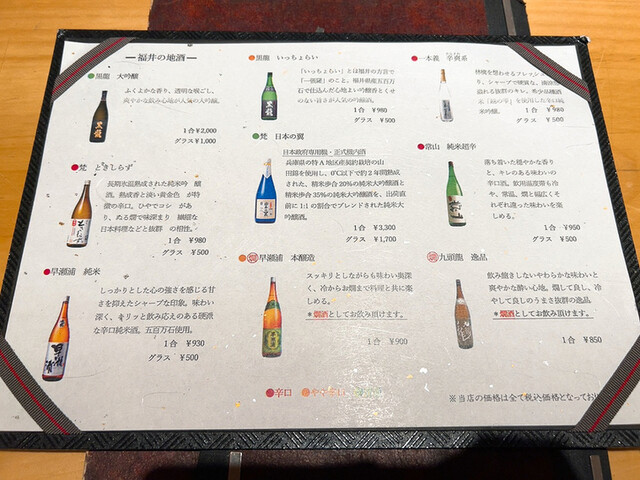 福井の地酒
黒龍 大吟醸
ふくよかな香り、透明な喉ごし、
爽やかな飲み心地が人気の大吟醸。
1合 ¥2,000
グラス ¥1,000
梵 ときしらず
長期氷温熟成された純米吟醸
酒。熟成香と淡い黄金色が特
徴の辛口。ひやでコシがあ
り、ぬる燗で味深まり繊細な
日本料理などと抜群の相性。
1合 ¥980
グラス ¥500
早瀬浦 純米
しっかりとした心の強さを感じる甘
さを抑えたシャープな印象。味わい
深く、キリッと飲み応えのある硬派
な辛口純米酒。五百万石使用。
1合 ¥930
グラス ¥500
黒龍 いっちょらい
「いっちょらい」とは福井の方言で
「一張羅」のこと。福井県産五百万
石で仕込んだ心地よい吟醸香とくせ
のない旨さが人気の吟醸酒。
1合 ¥980
グラス ¥500
梵 日本の翼
日本政府専用機・正式機内酒
兵庫県の特A地区産契約栽培の山
田錦を使用し、0℃以下で約2年間熟成
された、精米歩合20%の純米大吟醸酒と
精米歩合35%の純米大吟醸酒を、出荷直
前に1:1の割合でブレンドされた純米大
吟醸酒。
1合 ¥3,300
グラス ¥1,700
燗 早瀬浦 本醸造
スッキリとしながらも味わい奥深
く、冷からお燗まで料理と共に楽
しめる。
＊燗酒としてお飲み頂けます。
1合 ¥900
一本義 辛爽系
1合 ¥980
グラス ¥500
常山 純米超辛
落ち着いた穏やかな香り
と、キレのある味わいの
辛口酒。飲用温度帯も冷
や、常温、燗と幅広くそ
れぞれ違った味わいを楽
しめる。
1合 ¥950
グラス ¥500
燗 九頭龍 逸品
飲み飽きしないやわらかな味わいと
爽やかな酔い心地。燗して良し、冷
やして良しのうまさ抜群の逸品
＊燗酒としてお飲み頂けます。
1合 ¥850
辛口
※当店の価格は全て税込価格となってお